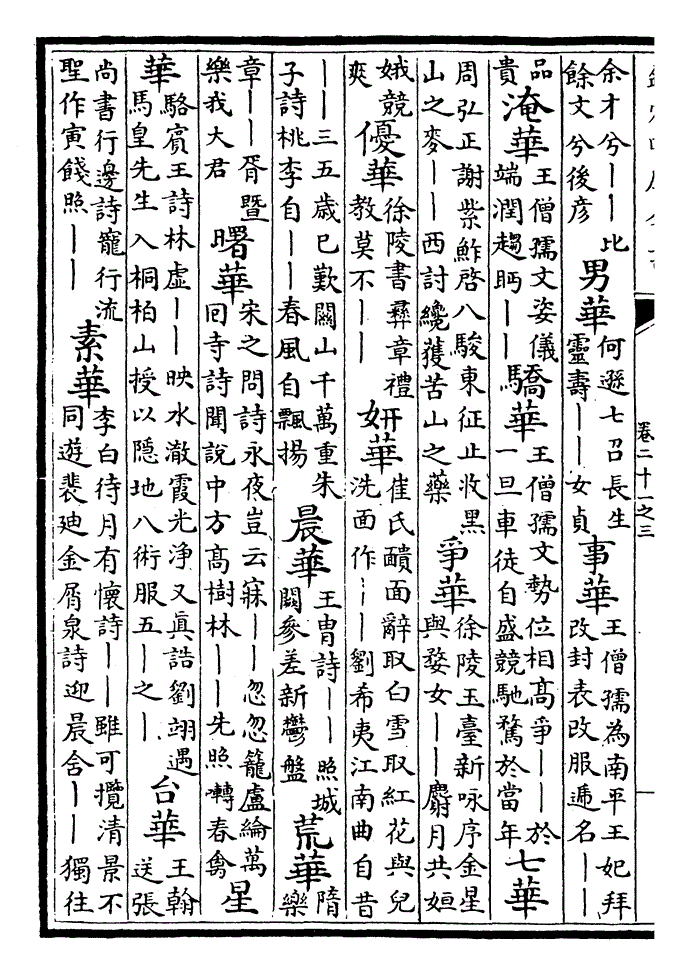 余才兮——比
餘文兮後彦
男華
何遜七召長生
靈壽——女貞
事華
王僧孺為南平王妃拜
改封表改服逓名——
品
貴
淹華
王僧孺文姿儀
端潤趨眄——
驕華
王僧孺文勢位相髙爭——於
一旦車徒自盛競馳騖於當年
七華
周弘正謝紫鮓啓八駿東征止收黒
山之麥——西討纔獲苦山之藥
爭華
徐陵玉臺新咏序金星
與婺女——麝月共姮
娥競
爽
優華
徐陵書彛章禮
教莫不——
妍華
崔氏靧面辭取白雪取紅花與兒
洗面作——劉希夷江南曲自昔
——三五歳已歎關山千萬重朱
子詩桃李自——春風自飄揚
晨華
王胄詩——照城
闕參差新鬱盤
荒華
隋
樂
章——胥暨
樂我大君
曙華
宋之問詩永夜豈云寐——忽忽籠盧綸萬
囘寺詩聞說中方髙樹林——先照囀春禽
星
華
駱賓王詩林虛——映水澈霞光淨又眞誥劉翊遇
馬皇先生入桐柏山授以隱地八術服五—之—
台華
王翰
送張
尚書行邊詩寵行流
聖作寅餞照——
素華
李白待月有懷詩——雖可攬清景不
同遊裴迪金屑泉詩迎晨含——獨往
卷二十一之三